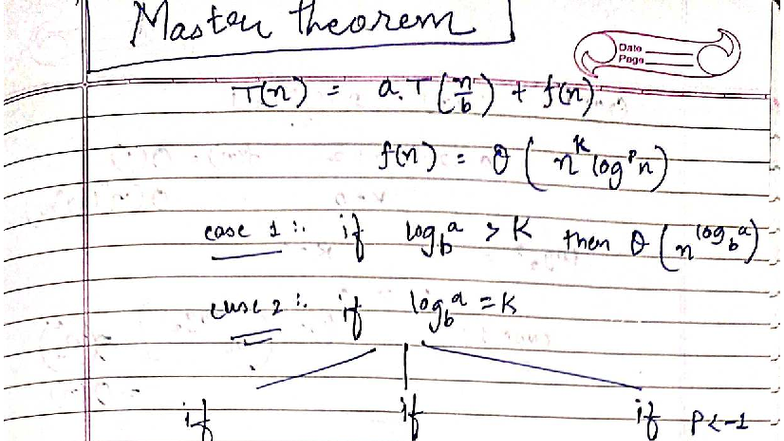 Master theorem
Date
Page
T(n) = a.T(n/b) + f(n)
f(n) = θ(n^k log^p n)
case 1 :. if log_b^a > K then θ(n^(log_b^a))
case 2 :. if log_b^a = K
if if if P<-1